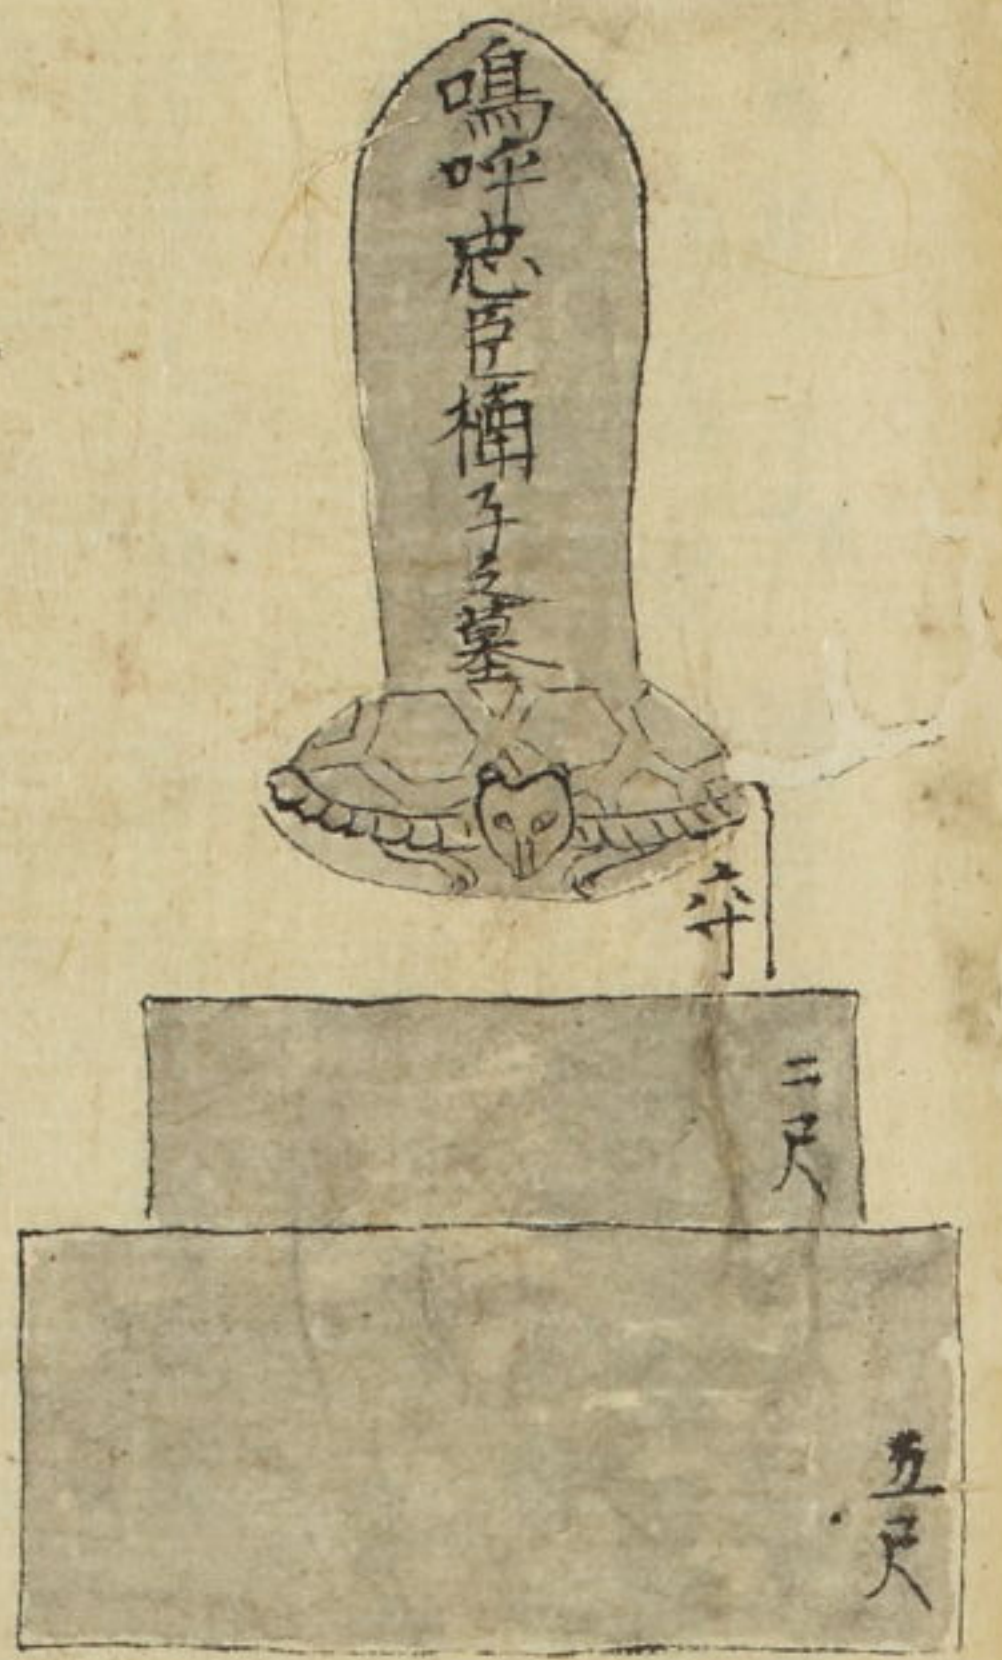 嗚呼忠臣楠子之墓
六寸
二尺
五尺